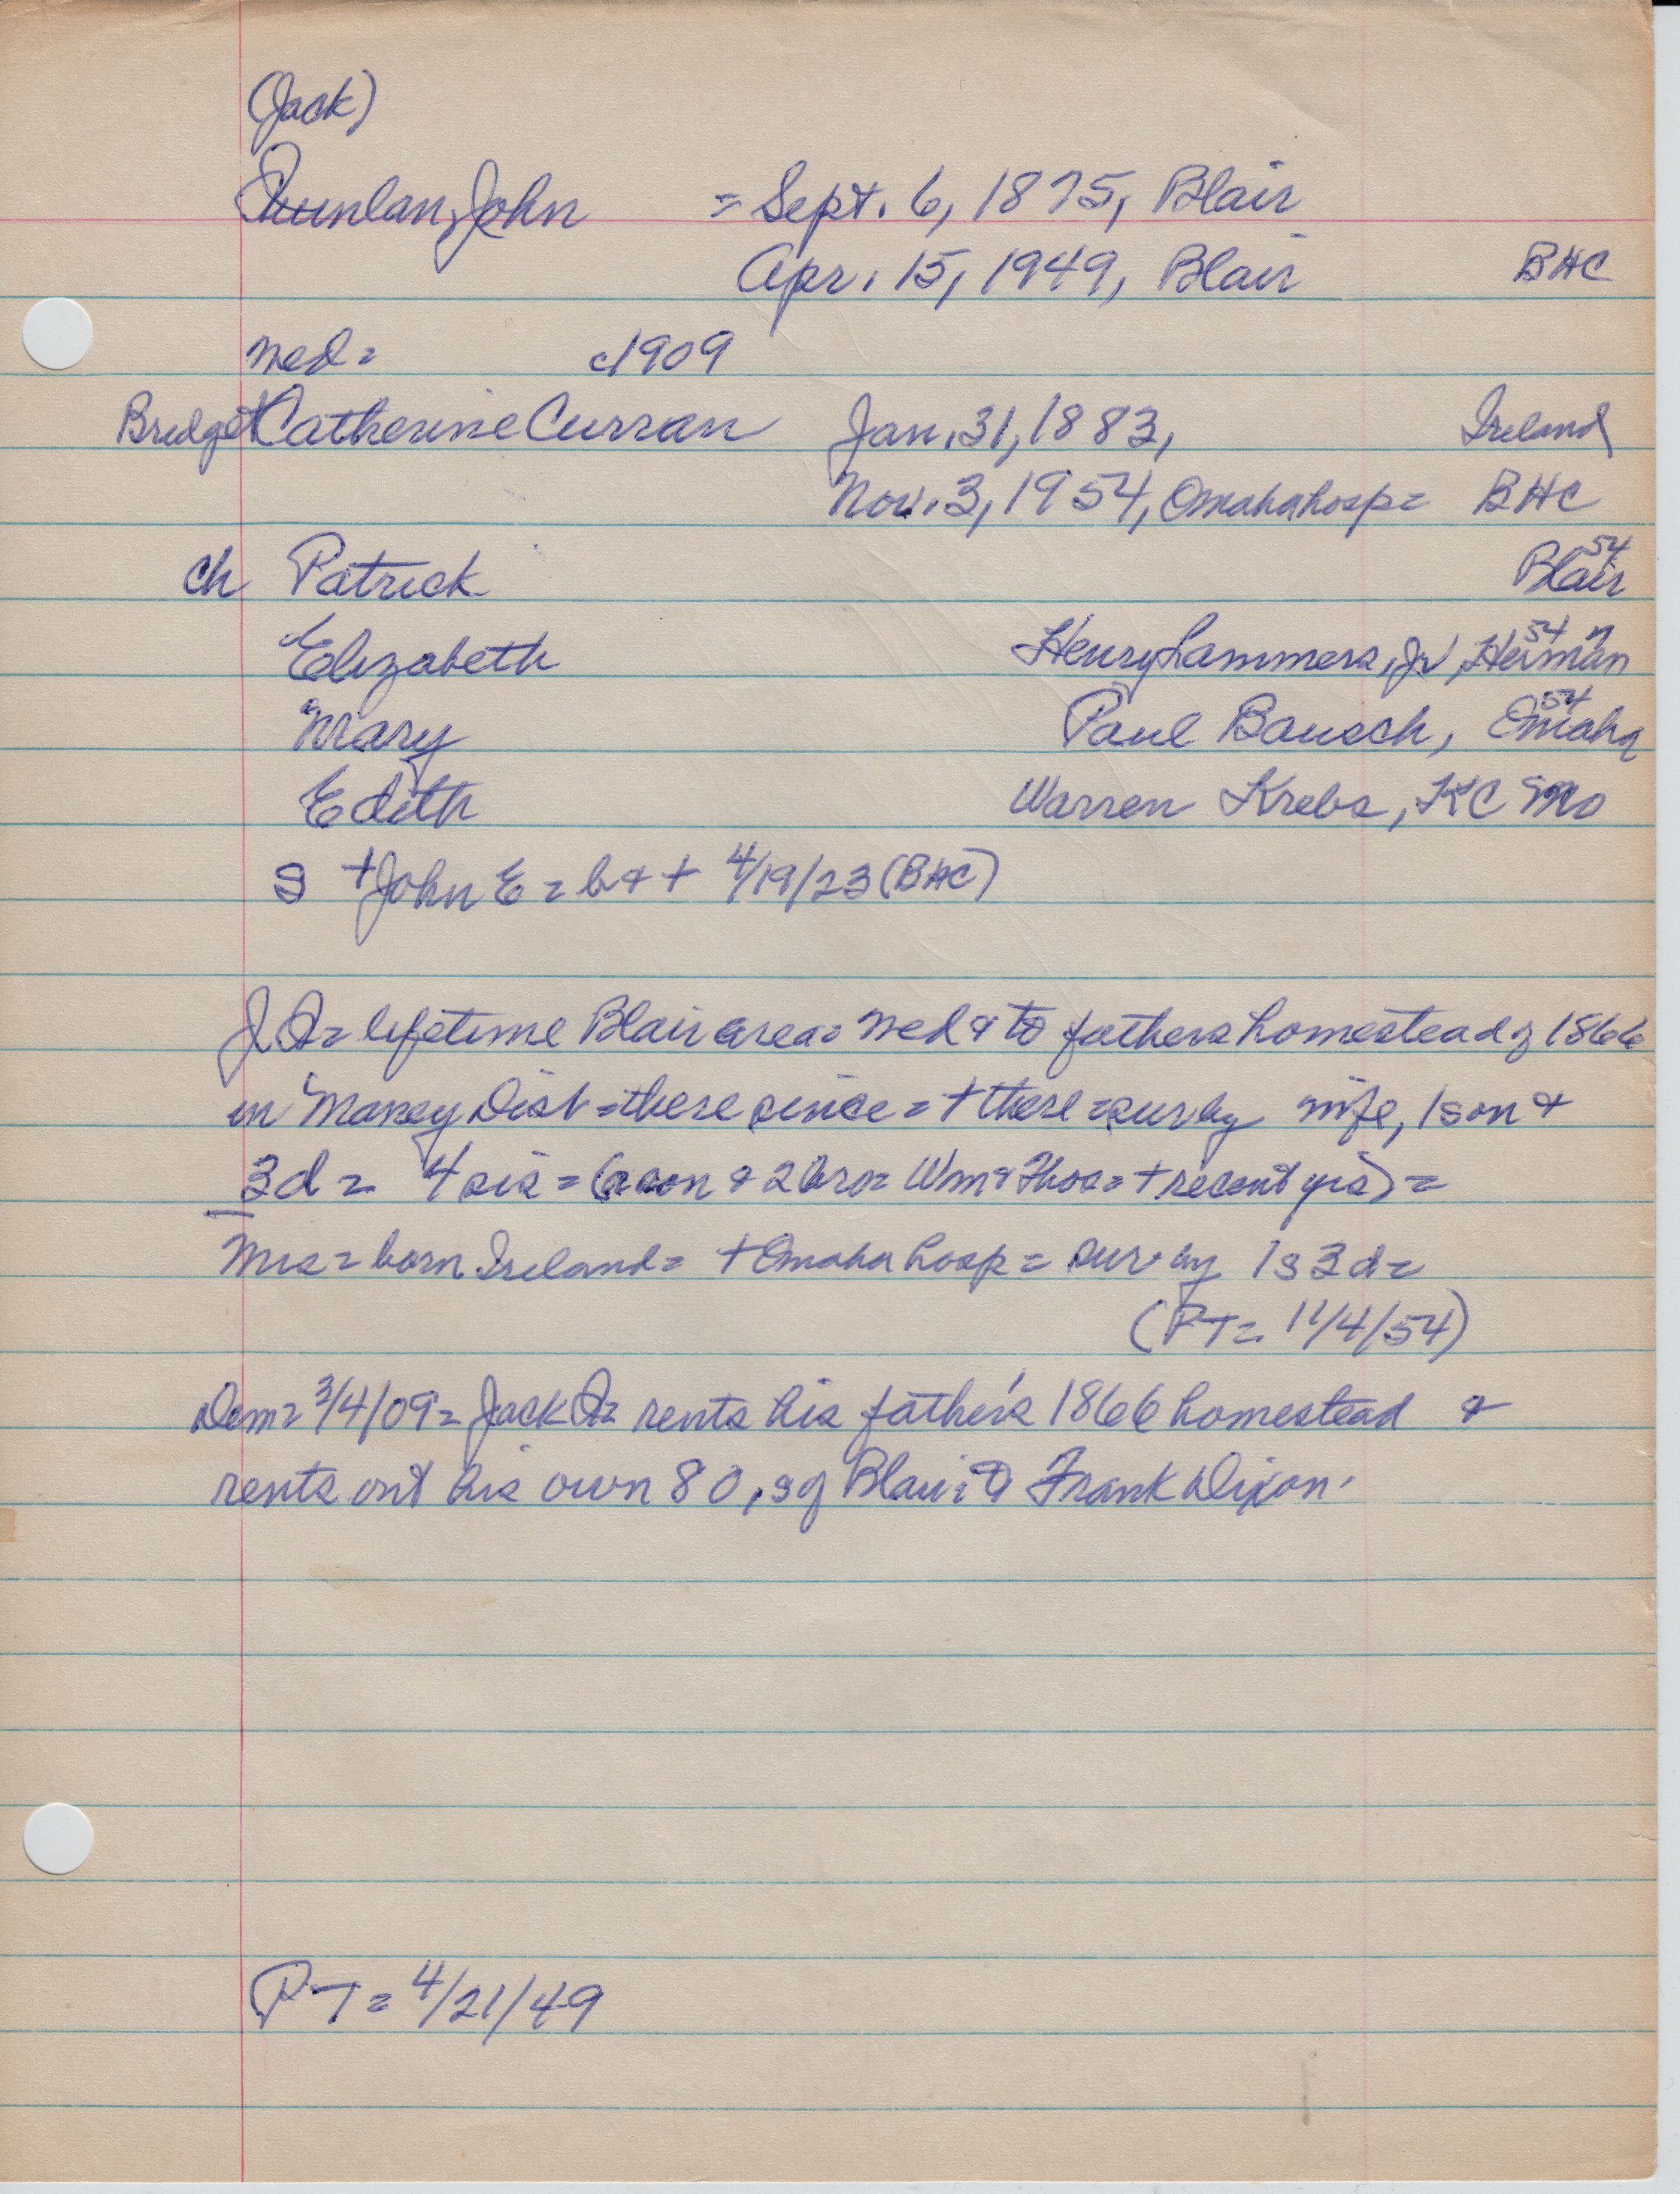 (Jack)
John = Sept. 6, 1875, Blair
Apr. 15, 1949, Blair BHC
med = c1909
Bridget Catherine Curran Jan. 31, 1883, Ireland
Nov. 3, 1954, Omaha hosp = BHC
ch Patrick Blair 54
Elizabeth Henry Lammers, Jr, Herman 54
Mary Paul Bausch, Omaha 54
Edith Warren Krebs, KC Mo
S +John E = b & + 4/19/23 (BHC)
J = lifetime Blair area = med & to fathers homestead of 1866
in Maney Dist = there since = + there = sur by wife, 1 son &
3d = 4 sis = (a son & 2 bro = Wm & Thos = + recent yrs) =
Mrs = born Ireland = + Omaha hosp = sur by 1s 3d =
(PT = 11/4/54)
Dem = 3/4/09 = Jack = rents his father's 1866 homestead &
rents out his own 80, s of Blair, Frank Dixon.
PT = 4/21/49